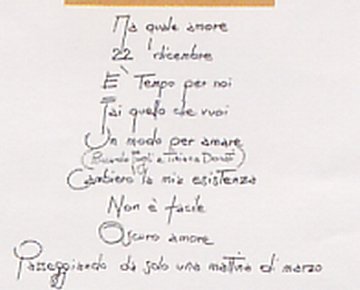 Ma quale amore
22 dicembre
E' Tempo per noi
Fai quello che vuoi
Un modo per amare
(Riccardo Fogli e Tiziana Donati)
Cambierò la mia esistenza
Non è facile
Oscuro amore
Passeggiando da solo una mattina di marzo